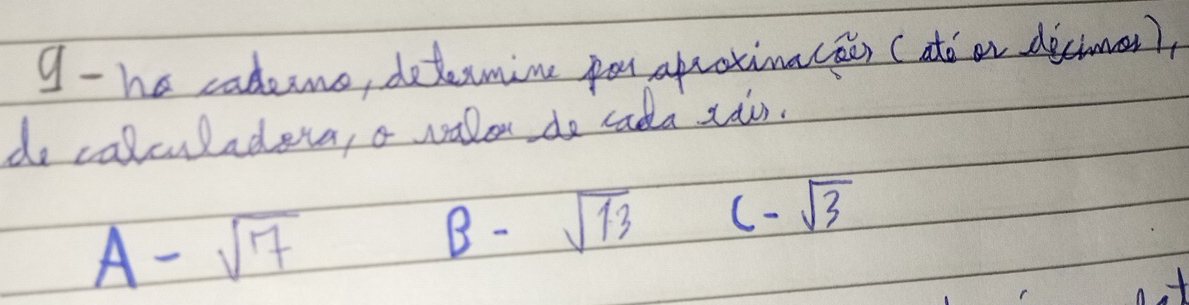 9 - no caderno, determine por aproximações (até os décimos),
de calculadora, o valor de cada raiz.
A - √7 B - √13 C - √3